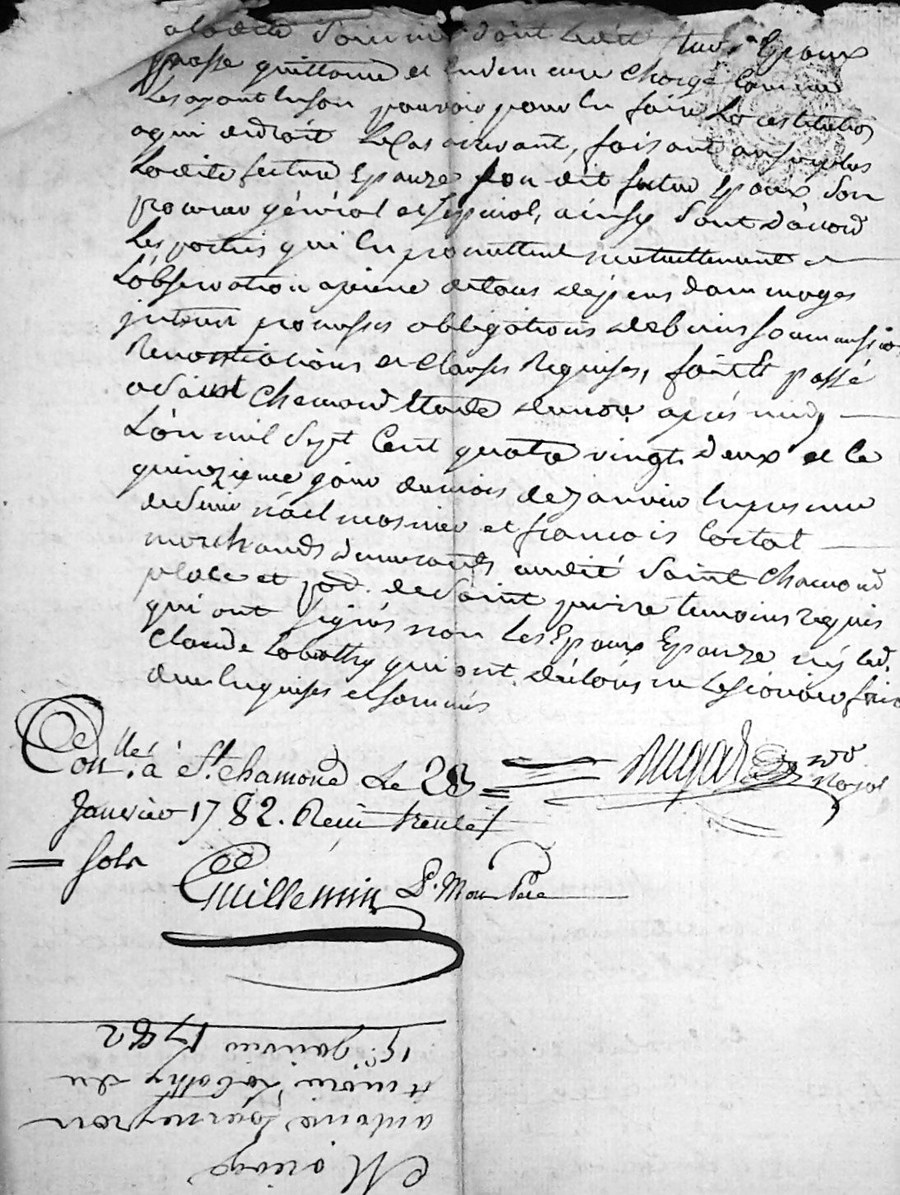 a ladite somme dont ledit futur Epoux
passe quittance et en demeure chargé comme
les ayant en son pouvoir pour en faire la restitution
a qui de droit le cas arrivant, faisant au surplus
Ladite future Epouze son dit futur Epoux son
procureur général et special, ainsy sont d'acord
Les parties qui en promettent mutuellement
L'observation a peine de tous depens dommages
interest promesses obligations de biens soumissions
Renontiations et clauses Requises, fait et passé
a Saint Chamond Etude du no.re après midy
L'an mil Sept Cent quatre vingt deux et le
quinzieme jour du mois de janvier en presence
de Sieur noël mosnier et francois
marchands demeurants audit Saint Chamond
place et de Saint pierre temoins requis
qui ont signés non Les Epoux Epouze ny lad.
Claude Labolhy qui ont déclarés ne le sçavoir faire
de ce enquises et sommés
Con.llé à St. chamond Le 28
Janvier 1782. Reçu trente
sols
no.re
Royal
Guillemin P. Mon Pere
Mariage
antoine tourneyron
Labolhy du
15e janvier 1782